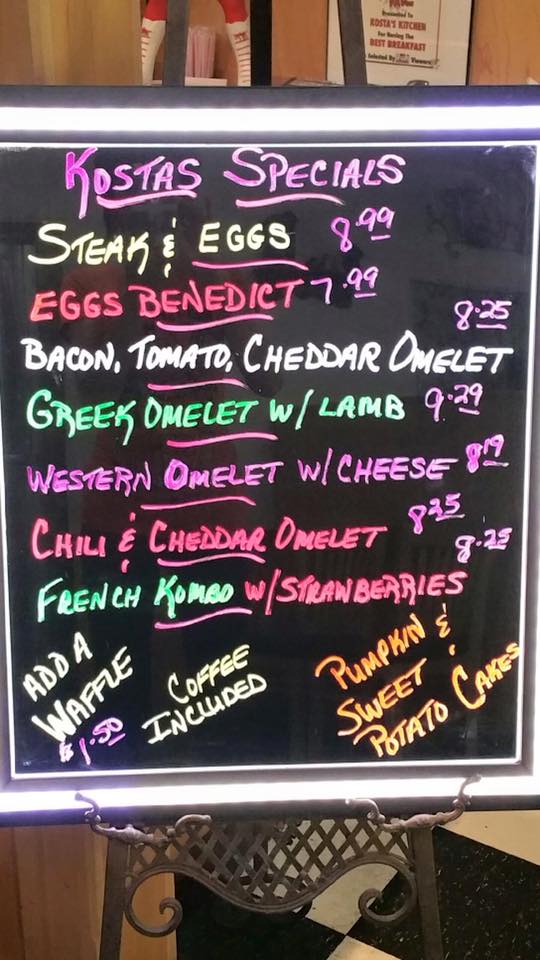 Presented to
KOSTA'S KITCHEN
For Having The
BEST BREAKFAST
Selected By Viewers
KOSTAS SPECIALS
STEAK & EGGS 8.99
EGGS BENEDICT 7.99
BACON, TOMATO, CHEDDAR OMELET 8.25
GREEK OMELET W/ LAMB 9.29
WESTERN OMELET W/CHEESE 8.19
CHILI & CHEDDAR OMELET 8.25
FRENCH KOMBO W/STRAWBERRIES 8.25
ADD A
WAFFLE
$1.50
COFFEE
INCLUDED
PUMPKIN &
SWEET
POTATO CAKES